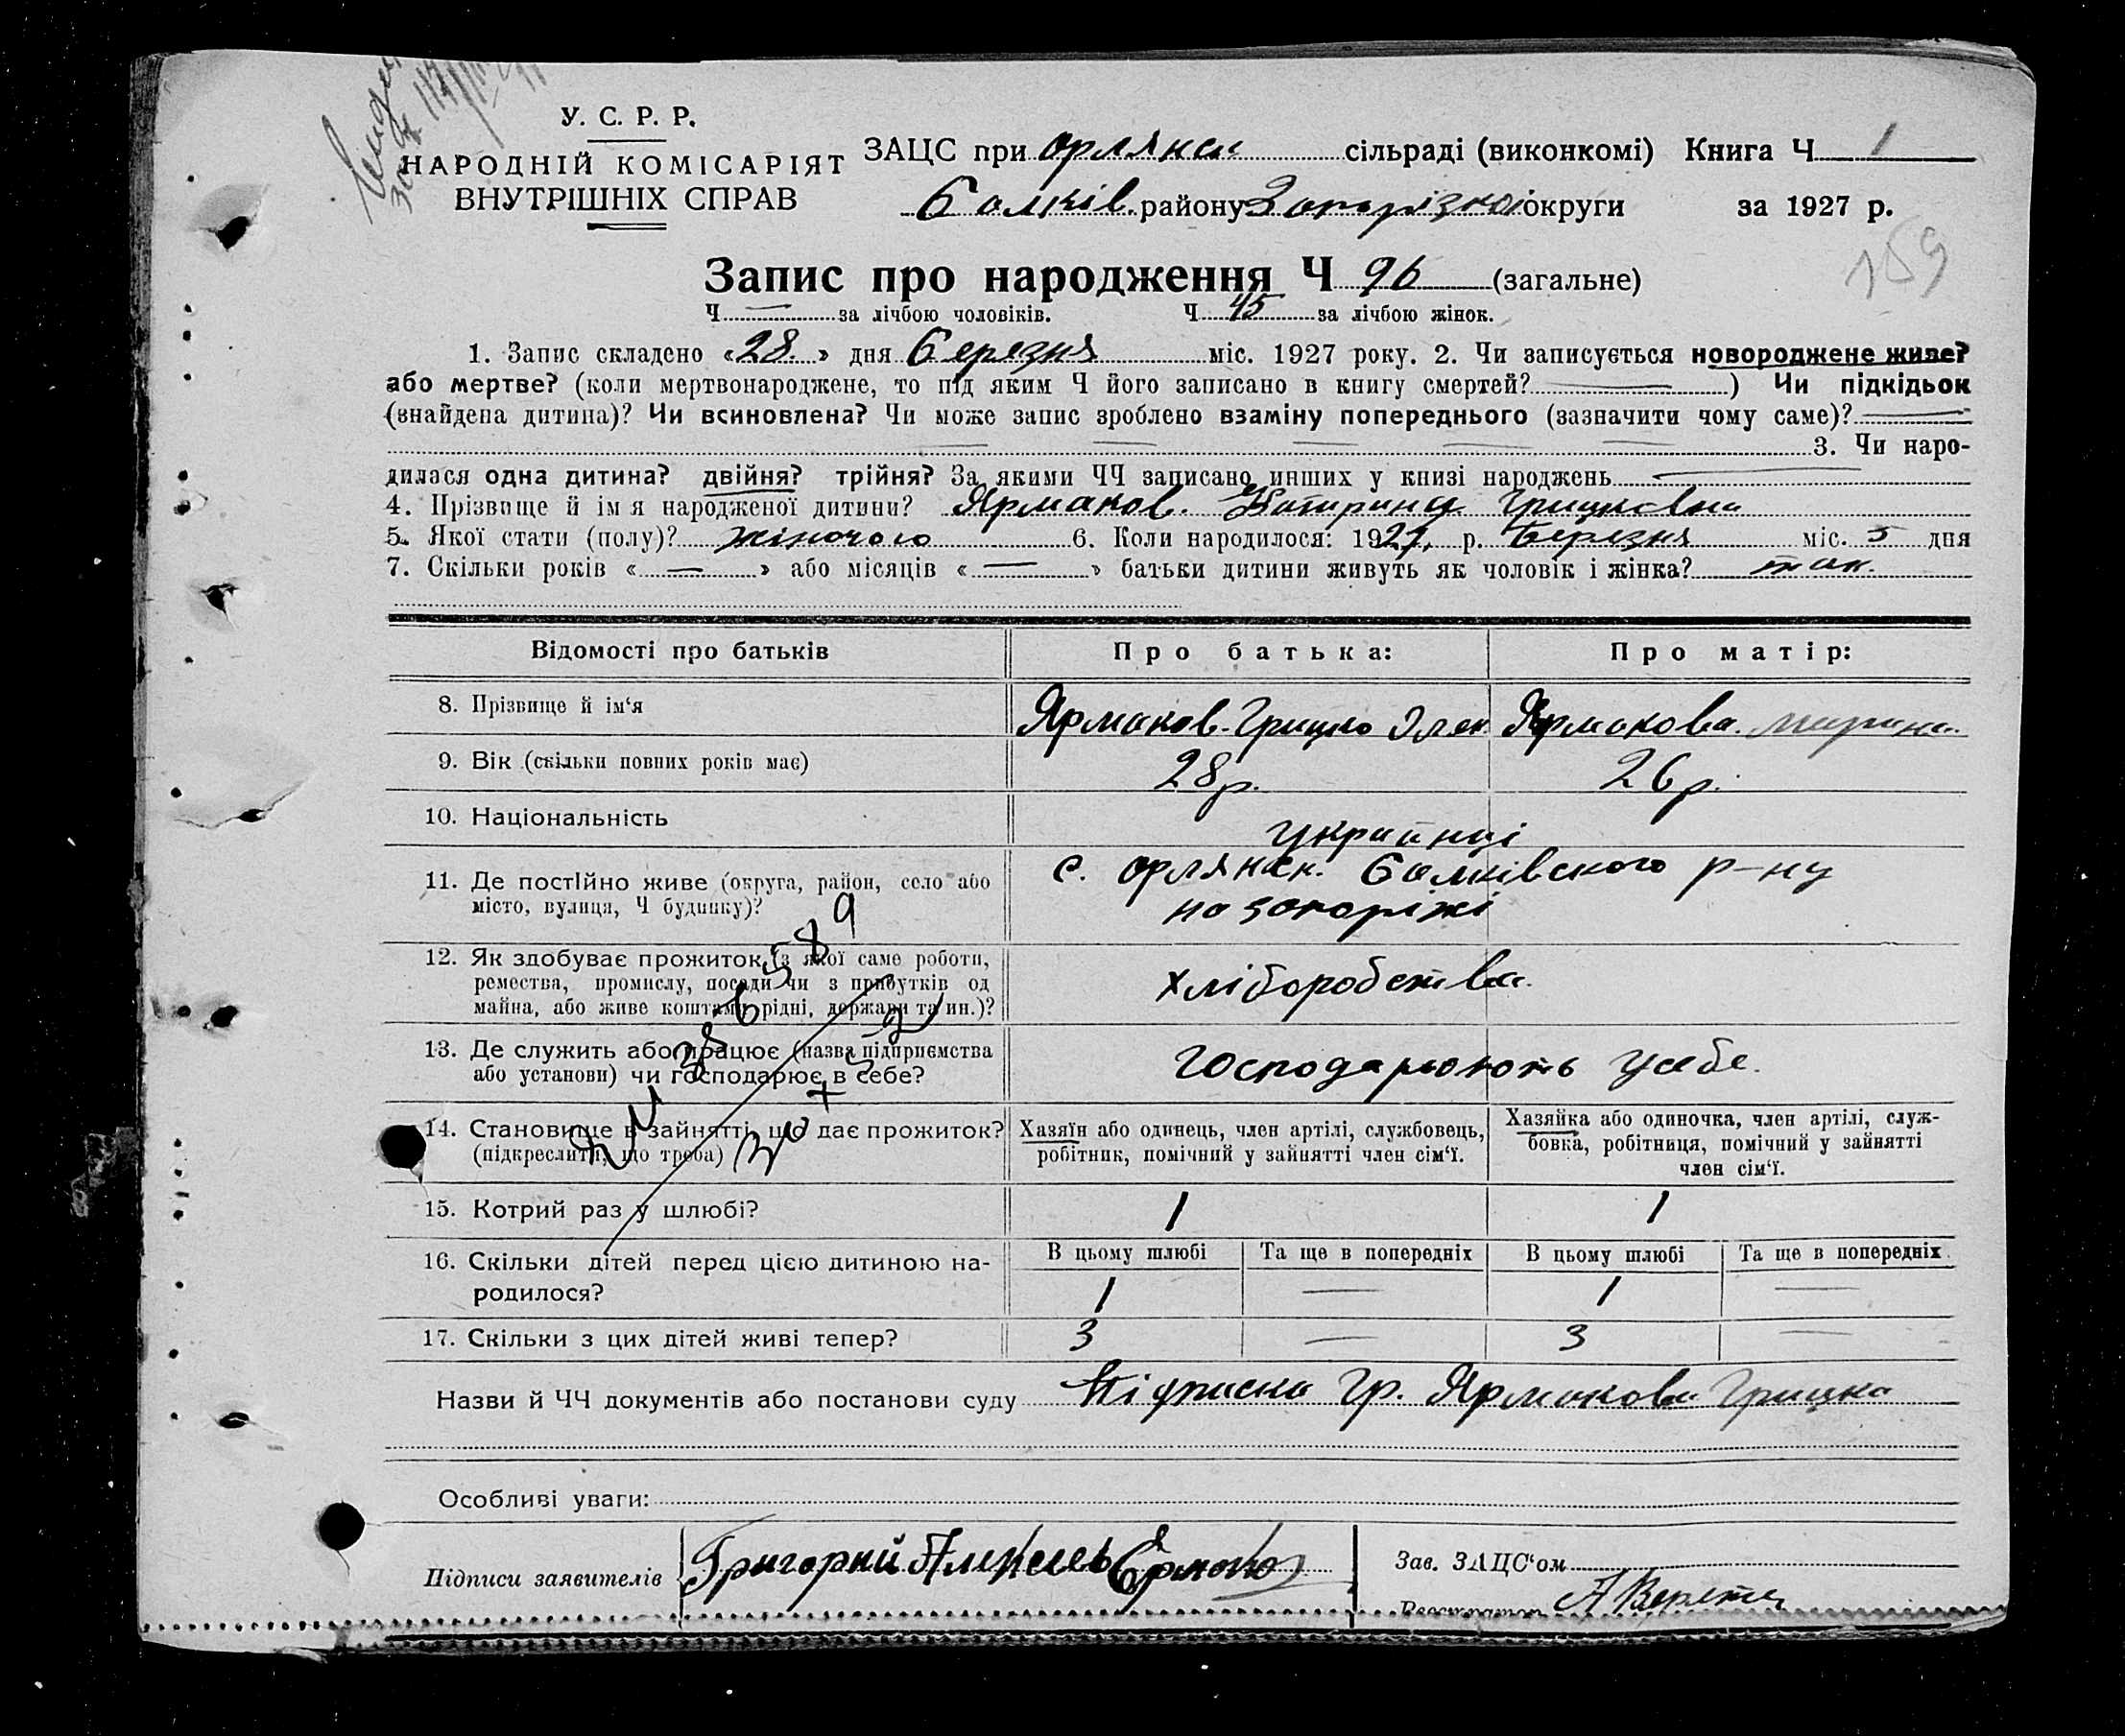 У. С. Р. Р.
НАРОДНІЙ КОМІСАРІЯТ
ВНУТРІШНІХ СПРАВ
ЗАЦС при Орлянск сільраді (виконкомі) Книга Ч 1
Балків. району Запорізької округи за 1927 р.
159
Запис про народження Ч 96 (загальне)
Ч — за лічбою чоловіків. Ч 45 за лічбою жінок.
1. Запис складено «28» дня Березня міс. 1927 року. 2. Чи записується новороджене живе?
або мертве? (коли мертвонароджене, то під яким Ч його записано в книгу смертей? —) Чи підкідьок
(знайдена дитина)? Чи всиновлена? Чи може запис зроблено взаміну попереднього (зазначити чому саме)? —
— — — — — 3. Чи наро-
дилася одна дитина? двійня? трійня? За якими ЧЧ записано инших у книзі народжень —
4. Прізвище й ім я народженої дитини? Ярмаков. Катирина Грицковна
5. Якої стати (полу)? жіночого 6. Коли народилося: 1927, р. Березня міс. 5 дня
7. Скільки років «—» або місяців «—» батьки дитини живуть як чоловік і жінка? так.
Відомості про батьків Про батька: Про матір:
8. Прізвище й ім'я Ярмаков. Грицко Олек Ярмакова. Марина.
9. Вік (скільки повних років має) 28 р. 26 р.
10. Національність українці
11. Де постійно живе (округа, район, село або с. Орлянск. Балківского р-ну
місто, вулиця, Ч будинку)? на запоріжі
12. Як здобуває прожиток (з якої саме роботи,
ремества, промислу, посади чи з прибутків од хліборобства.
майна, або живе коштами рідні, держави та ин.)?
13. Де служить або працює (назва підприємства господарюють усебе.
або установи) чи господарює в себе?
14. Становище в зайнятті, що дає прожиток? Хазяїн або одинець, член артілі, службовець, Хазяйка або одиночка, член артілі, служ-
(підкреслити, що треба) робітник, помічний у зайнятті член сім'ї. бовка, робітниця, помічний у зайнятті
член сім'ї.
15. Котрий раз у шлюбі? 1 1
16. Скільки дітей перед цією дитиною на- В цьому шлюбі Та ще в попередніх В цьому шлюбі Та ще в попередніх
родилося? 1 — 1 —
17. Скільки з цих дітей живі тепер? 3 — 3 —
Назви й ЧЧ документів або постанови суду Підписка гр. Ярмакова Грицка
Особливі уваги:
Підписи заявителів Григорий Алексеев Ермаков Зав. ЗАЦС'ом
Реєстратор